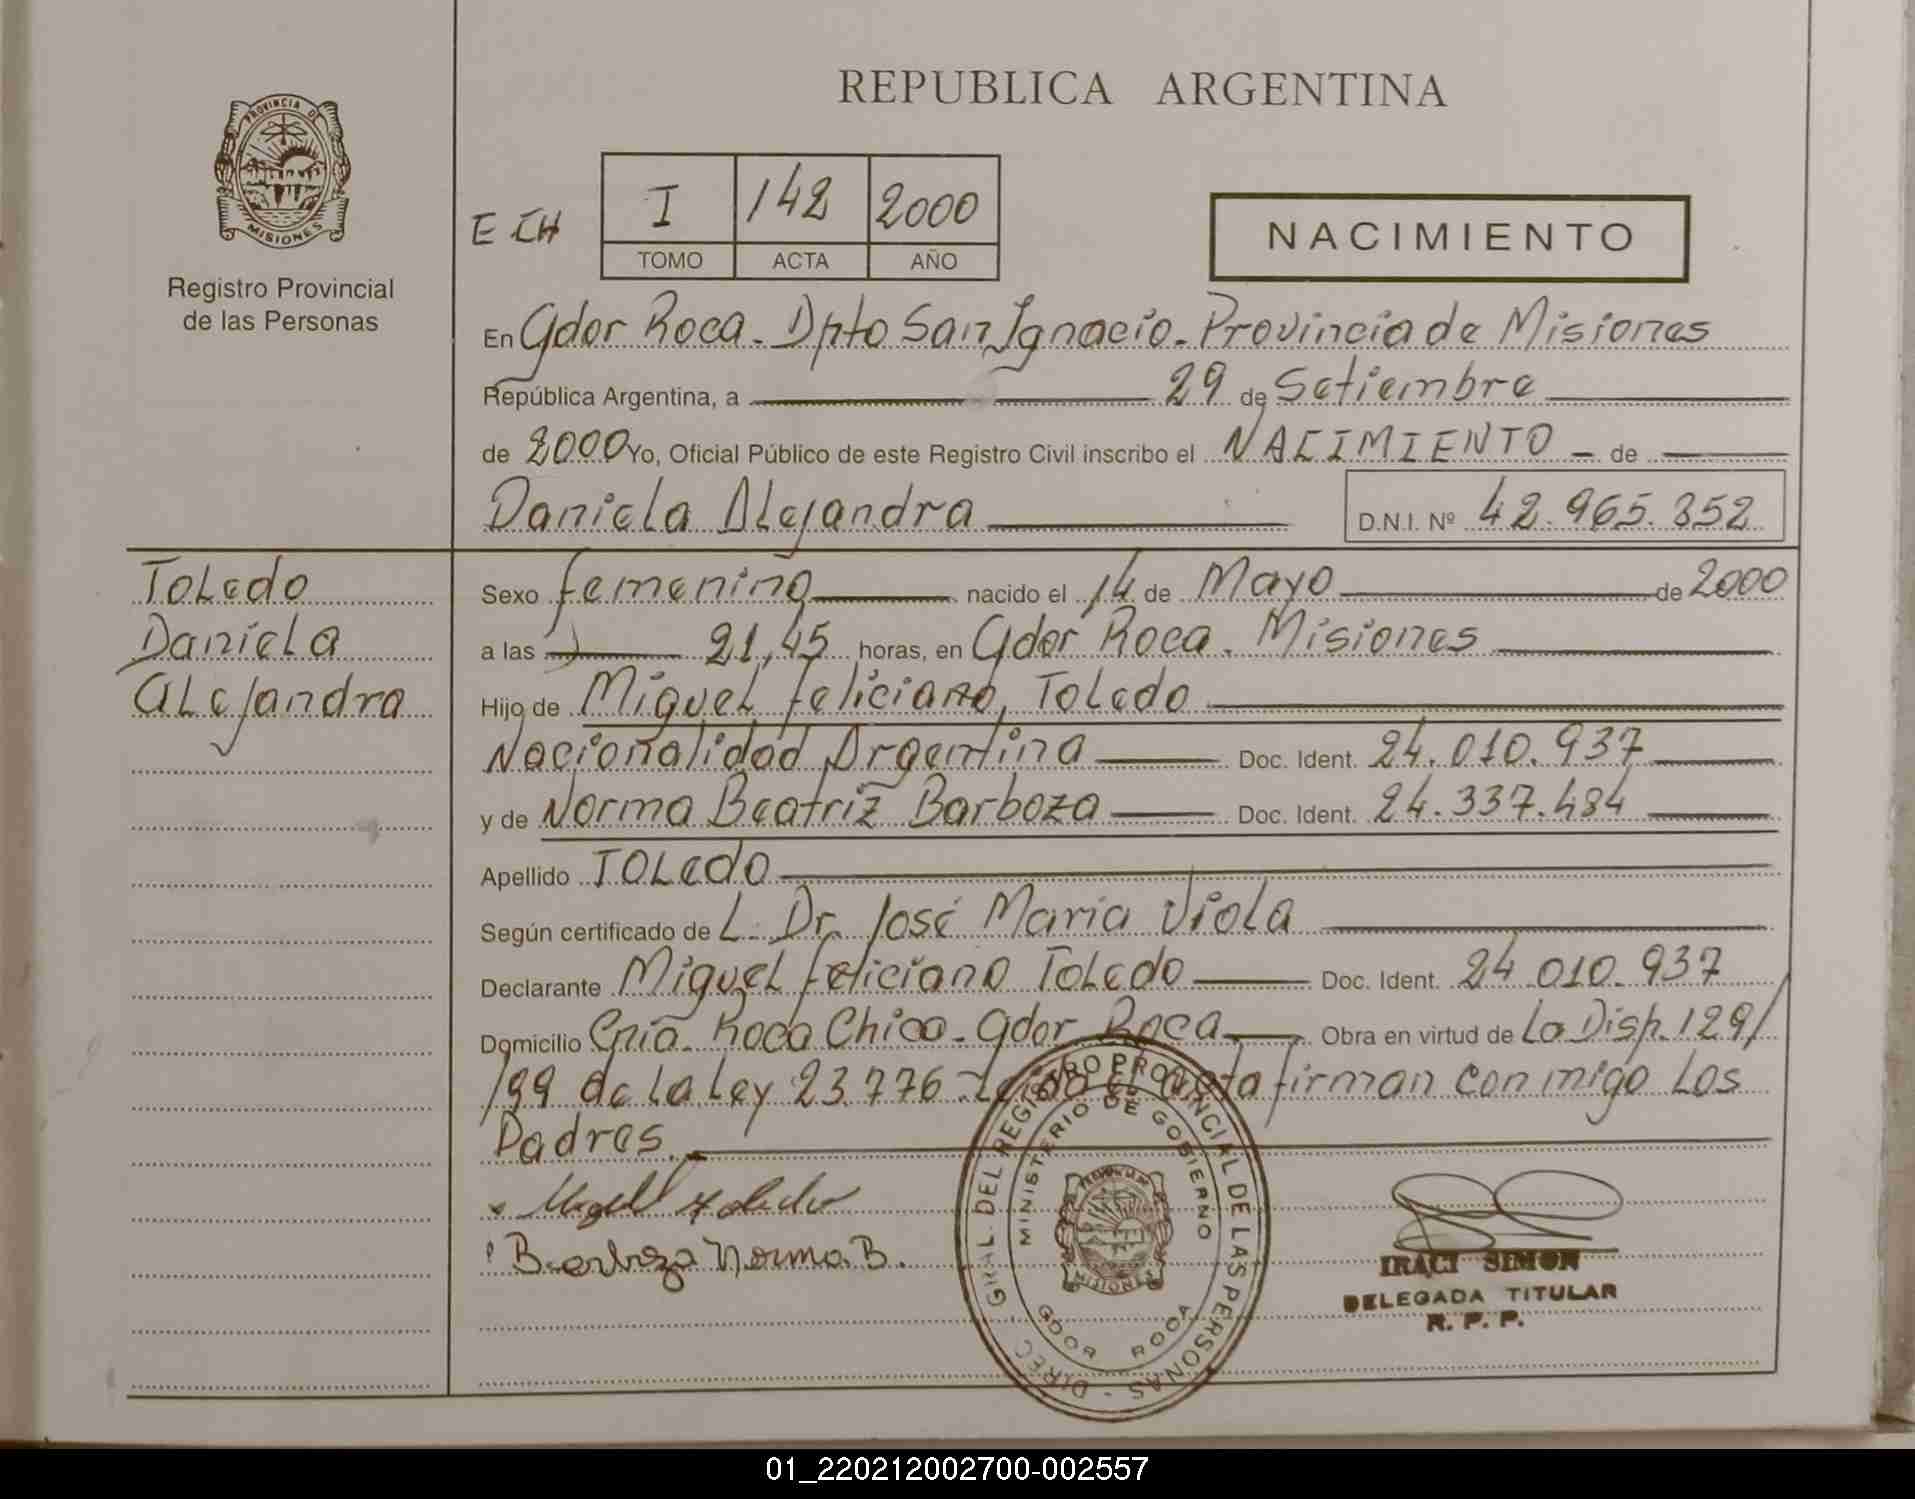 REPUBLICA ARGENTINA
PROVINCIA DE
MISIONES
Registro Provincial
de las Personas
I 142 2000
TOMO ACTA AÑO
NACIMIENTO
En Gdor Roca. Dpto San Ignacio. Provincia de Misiones
República Argentina, a 29 de Setiembre
de 2000 Yo, Oficial Público de este Registro Civil inscribo el NACIMIENTO de
Daniela Alejandra
D.N.I. Nº 42.965.352
Toledo
Daniela
Alejandra
Sexo femenino nacido el 14 de Mayo de 2000
a las 21,45 horas, en Gdor Roca. Misiones
Hijo de Miguel Feliciano Toledo
Nacionalidad Argentina Doc. Ident. 24.010.937
y de Norma Beatriz Barboza Doc. Ident. 24.337.484
Apellido TOLedo
Según certificado de L. Dr. José María Viola
Declarante Miguel Feliciano Toledo Doc. Ident. 24.010.937
Domicilio Roca Chico - Gdor Roca Obra en virtud de La Disp. 129/
/99 de La Ley 23.776 firman conmigo Los
Padres.
Miguel Toledo
Barboza Norma B.
DIREC. GRAL. DEL REGISTRO PROVINCIAL DE LAS PERSONAS -
MINISTERIO DE GOBIERNO
GDOR ROCA
MISIONES
IRACI SIMON
DELEGADA TITULAR
R. P. P.
01_220212002700-002557